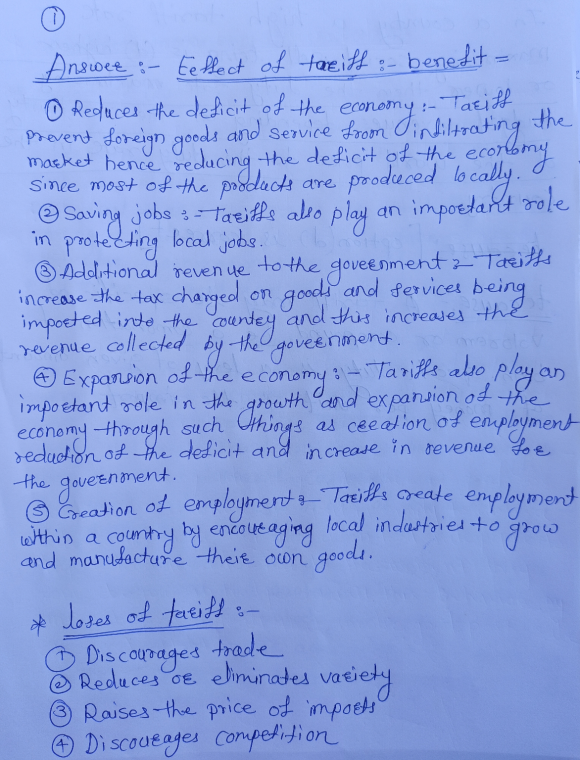 ①
Answer :- Eeffect of tariff :- benefit =
① Reduces the deficit of the economy :- Tariff
prevent foreign goods and service from infiltrating the
market hence reducing the deficit of the economy
since most of the products are produced locally.
② Saving jobs :- Tariffs also play an important role
in protecting local jobs.
③ Additional revenue to the government :- Tariffs
increase the tax charged on goods and services being
imported into the country and this increases the
revenue collected by the government.
④ Expansion of the economy :- Tariffs also play an
important role in the growth and expansion of the
economy through such things as creation of employment
reduction of the deficit and increase in revenue for
the government.
⑤ Creation of employment :- Tariffs create employment
within a country by encouraging local industries to grow
and manufacture their own goods.
* loses of tariff :-
① Discourages trade
② Reduces or eliminates variety
③ Raises the price of imports
④ Discourages competition